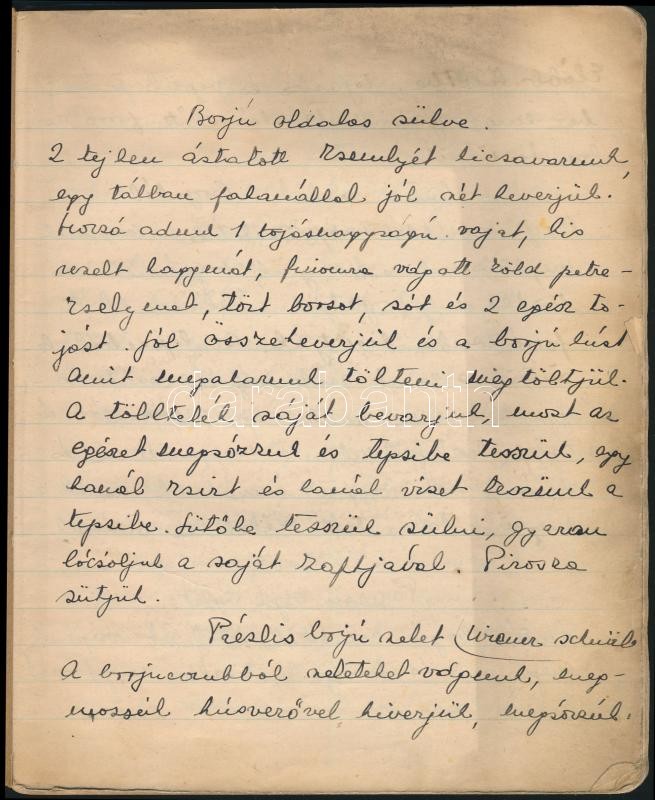 Borjú oldalas sülve.
2 tejben áztatott zsemlyét kicsavarunk,
egy tálban fakanállal jól szét keverjük.
hozzá adunk 1 tojásnagyságú vajat, kis
reszelt hagymát, finomra vágott zöld petre-
zselymet, tört borsot, sót és 2 egész to-
jást. Jól összekeverjük és a borjú húst
amit megakarunk tölteni megtöltjük.
A töltelék száját bevarjuk, most az
egészet megsózzuk és tepsibe tesszük, egy
kanál zsírt és kanál vizet teszünk a
tepsibe. Sütőbe tesszük sülni, gyakran
locsoljuk a saját zaftjával. Pirosra
sütjük.
Prézlis borjú szelet (Wiener
A borjucombból szeleteket vágunk, meg-
mossuk húsverővel kiverjük, megsózzuk.
darabanth